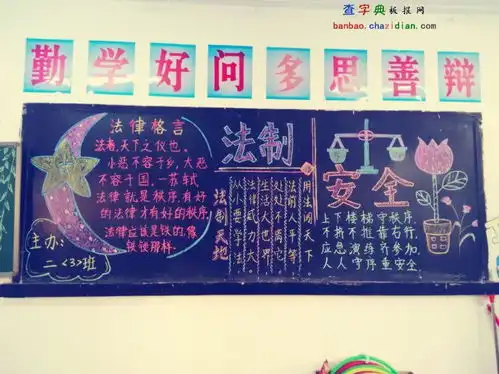 查字典 板报网
banbao.chazidian.com
勤学好问多思善辩
法律格言
法者,天下之仪也。
小恶不容于乡,大恶
不容于国。—苏轼
法律就是秩序,有好
的法律才有好的秩序
法律应该是铁的,像
铁锁那样.
主办:
二<3>班
法制
法制天地
用法闯天下。
法前人人平等,
处处不离它。
生活大世界,
法律威力大。
从小要学法,
安全
上下楼梯守秩序,
不挤不抢靠右行.
应急演练齐参加,
人人守序重安全.